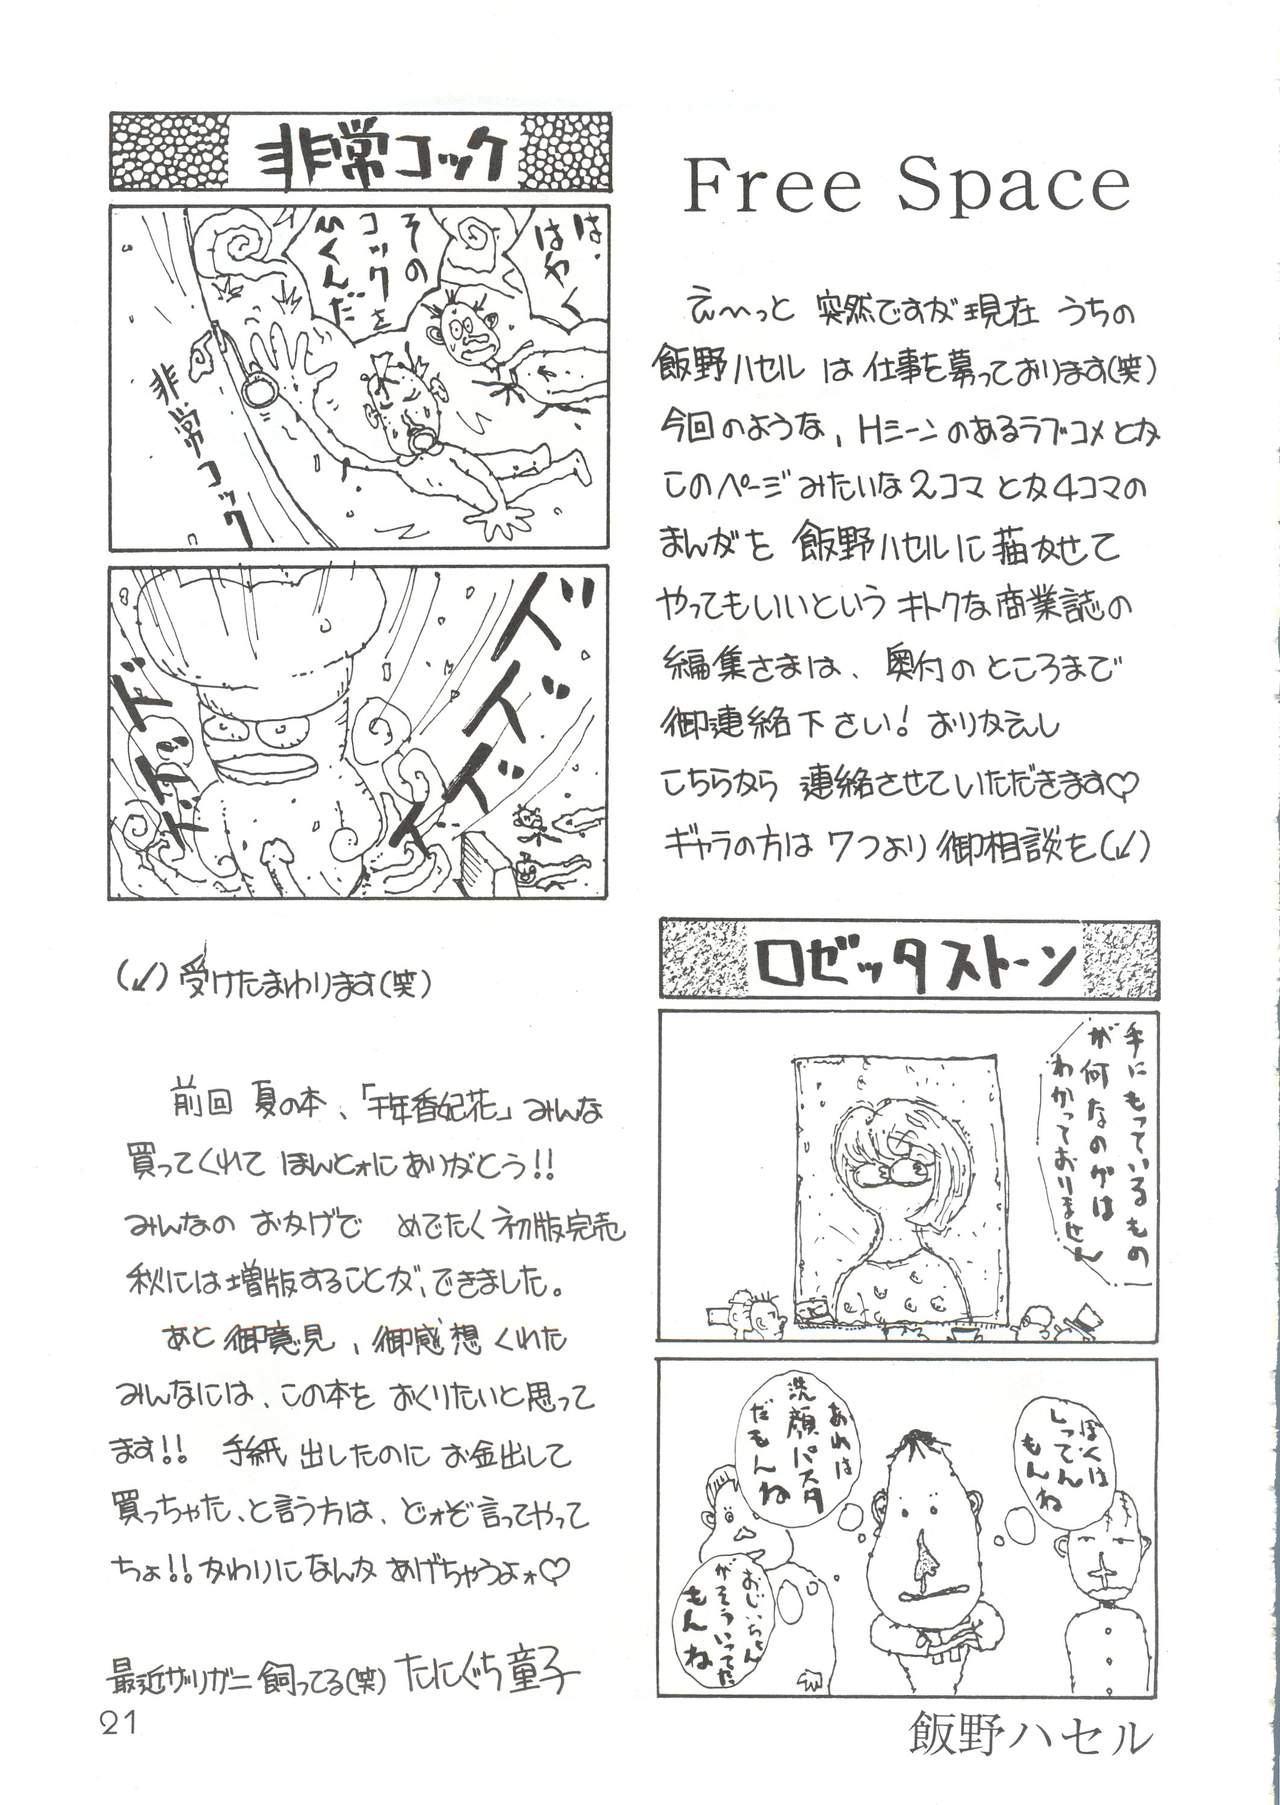 Free Space
え〜っと 突然ですが現在 うちの
飯野ハセル は 仕事を募っております(笑)
今回のような、Hシーンのあるラブコメとか
このページみたいな2コマとか4コマの
まんがを 飯野ハセルに描かせて
やってもいいという キトクな商業誌の
編集さまは、奥付のところまで
御連絡下さい! おりかえし
こちらから 連絡させていただきます♡
ギャラの方は 7つより 御相談を(↙)
(↙)受けたまわります(笑)
前回 夏の本、「千年香妃花」みんな
買ってくれて ほんとォにありがとう!!
みんなの おかげで めでたく初版完売
秋には増版することが、できました。
あと 御意見、御感想 くれた
みんなには、この本を おくりたいと思って
ます!! 手紙 出したのに お金出して
買っちゃた、と言う方は、どォぞ言ってやって
ちょ!! かわりになんか あげちゃうよォ♡
最近ザリガニ 飼ってる(笑) たにぐち童子
非常コック
は、
はやく
その
コックを
ひくんだ
非常コック
ズズズズ
ドドドド
ロゼッタストーン
手にもっているもの
が何なのかは
わかっておりません
ぼくは
しってん
もんね
あれは
洗顔パスタ
だもんね
おじいちゃん
がそういってた
もんね
飯野ハセル
21